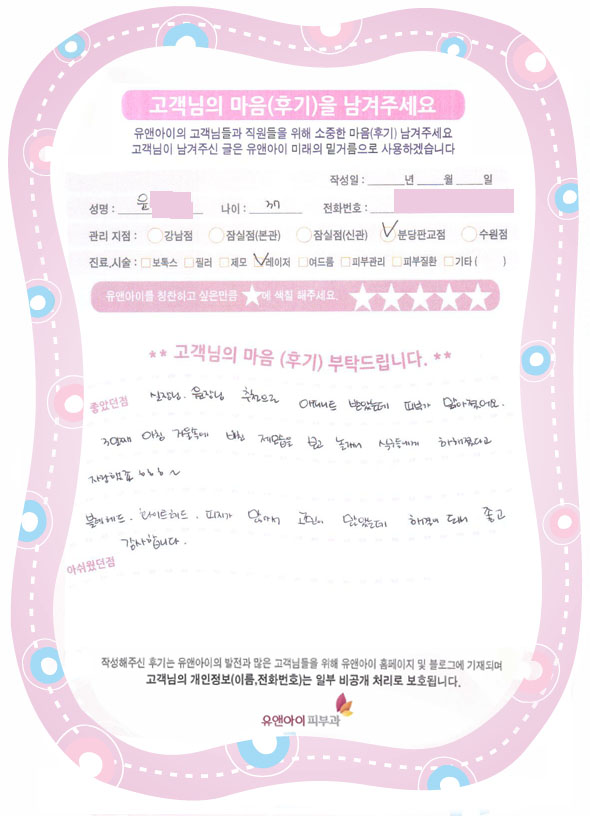 고객님의 마음(후기)을 남겨주세요
유앤아이의 고객님들과 직원들을 위해 소중한 마음(후기) 남겨주세요
고객님이 남겨주신 글은 유앤아이 미래의 밑거름으로 사용하겠습니다
작성일 : ______년 _____월 _____일
성명 : 윤 나이 : 37 전화번호 :
관리 지점 : 강남점 잠실점(본관) 잠실점(신관) 분당판교점 수원점
진료,시술 : 보톡스 필러 제모 레이저 여드름 피부관리 피부질환 기타 ( )
유앤아이를 칭찬하고 싶은만큼 ★에 색칠 해주세요. ★★★★★
** 고객님의 마음 (후기) 부탁드립니다. **
좋았던점 실장님. 원장님 추천으로 받았는데 피부가 맑아졌어요.
3일째 아침 거울속에 비친 제모습을 보고 놀래서 식구들에게 하얘졌다고
자랑했죠 ㅎㅎㅎ~
블랙헤드. 화이트헤드. 피지가 많아서 고민이 많았는데 해결이 되서 좋고
감사합니다.
아쉬웠던점
작성해주신 후기는 유앤아이의 발전과 많은 고객님들을 위해 유앤아이 홈페이지 및 블로그에 기재되며
고객님의 개인정보(이름,전화번호)는 일부 비공개 처리로 보호됩니다.
유앤아이피부과